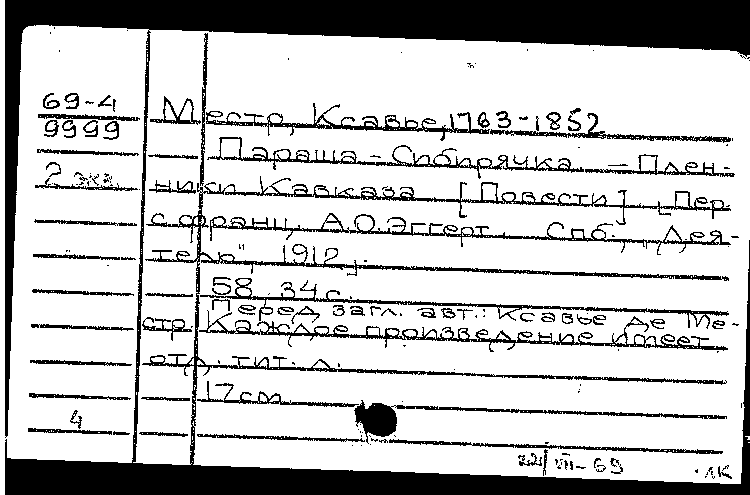 69-4
9999
2 экз.
Местр, Ксавье, 1763-1852
Параша-Сибирячка. - Плен-
ники Кавказа [Повести]. Пер.
с франц. А.О.Эггерт. Спб., "Дея-
тель", 1912.
58, 34 с.
Перед загл. авт.: Ксавье де Ме-
стр. Каждое произведение имеет
отд. тит. л.
17 см
4
22/VII-69
ЛК